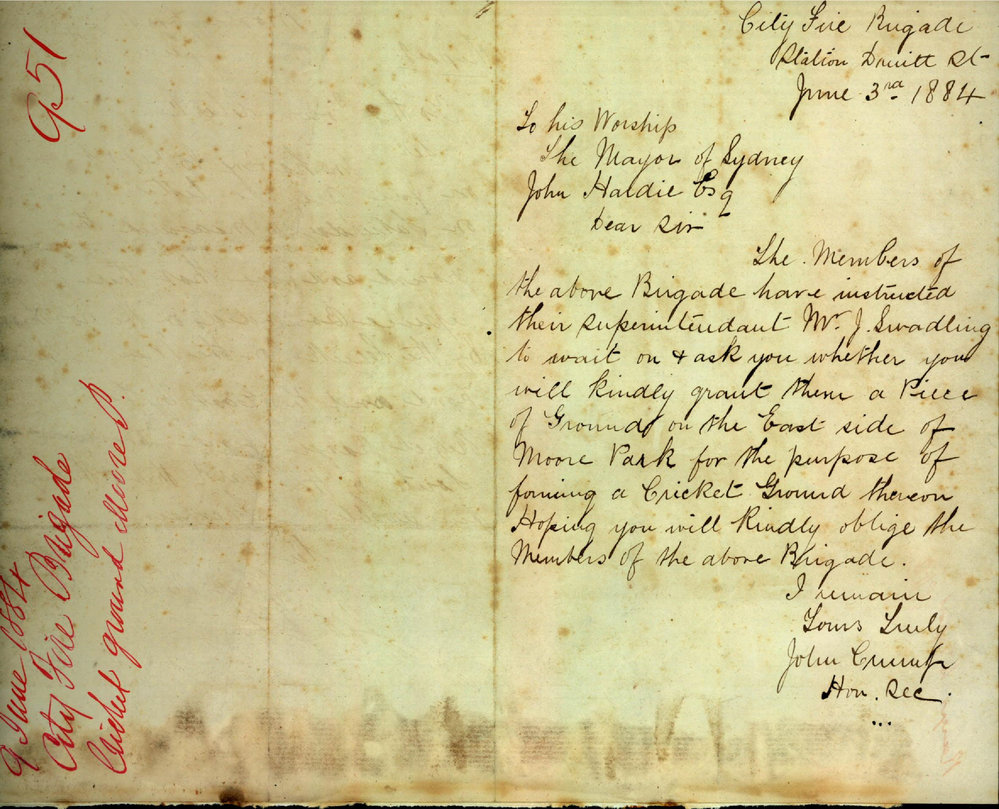 City Fire Brigade
Station Druitt St
June 3rd 1884
To his Worship
The Mayor of Sydney
John Hardie Esq
Dear Sir
The Members of
the above Brigade have instructed
their superintendant Mr. J. Swadling
to wait on & ask you whether you
will kindly grant them a Piece
of Ground on the East side of
Moore Park for the purpose of
forming a Cricket Ground thereon
Hoping you will kindly oblige the
Members of the above Brigade.
I remain
Yours Truly
John Crump
Hon. Sec.
951
9 June 1884
City Fire Brigade
Cricket ground Moore P.